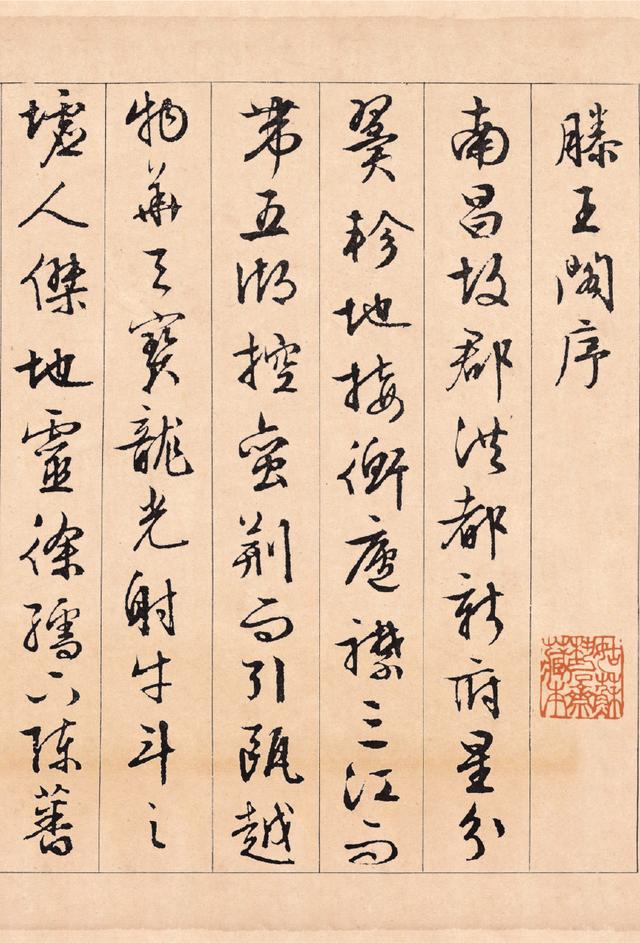 滕王閣序
南昌故郡洪都新府星分
翼軫地接衡廬襟三江而
帶五湖控蠻荊而引甌越
物華天寶龍光射牛斗之
墟人傑地靈徐孺下陳蕃